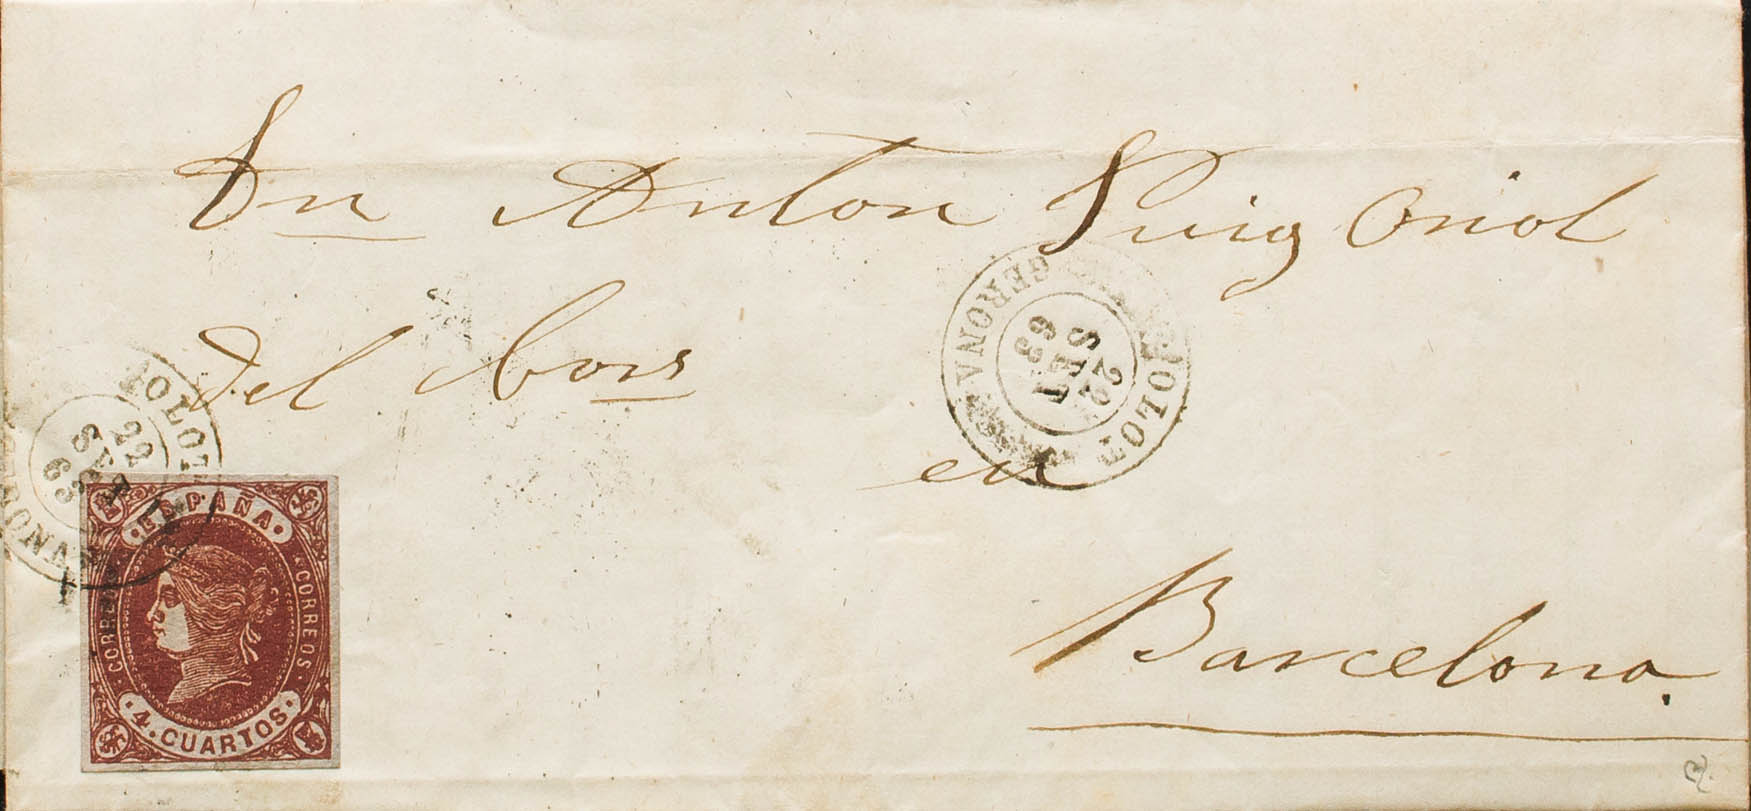 Dn Anton Puig Oriol
del Cors
en
Barcelona.
OLOT GERONA
22
SET
63
OLOT
22
SET
63
ESPAÑA
CORREOS
CORREOS
4. CUARTOS